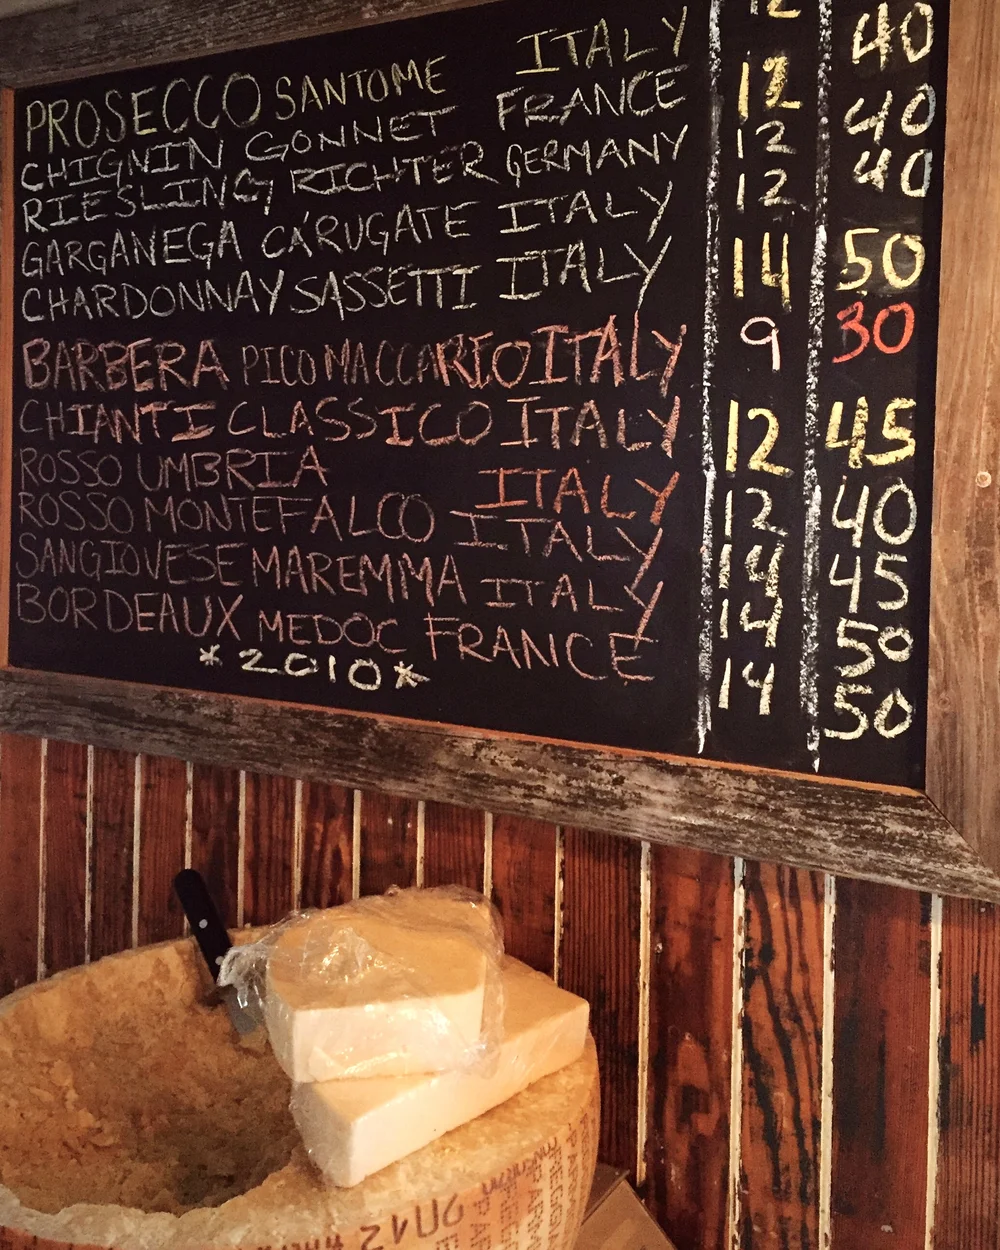 PROSECCO SANTOME ITALY 12
CHIGNIN GONNET FRANCE 12 40
RIESLING RICHTER GERMANY 12 40
GARGANEGA CÁRUGATE ITALY 12 40
CHARDONNAY SASSETTI ITALY 14 50
BARBERA PICO MACCARIO ITALY 9 30
CHIANTI CLASSICO ITALY 12 45
ROSSO UMBRIA ITALY 12 40
ROSSO MONTEFALCO ITALY 14 45
SANGIOVESE MAREMMA ITALY 14 50
BORDEAUX MEDOC FRANCE 14 50
*2010*